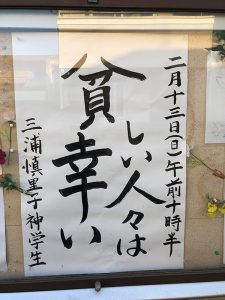 二月十三日(日)午前十時半
貧しい人々は
幸い
三浦慎里子神学生